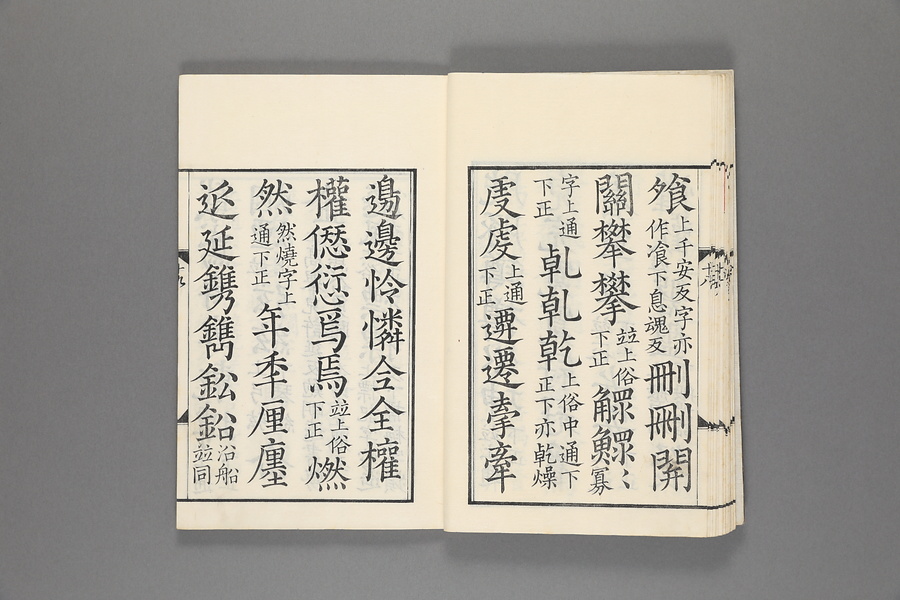 飧上千安反字亦作飡下息魂反刪删𨳡
關㩯攀竝上俗下正𧢲鰥〻寡
字上通下正乹乾乾上俗中通下正下亦乾燥
虔上通下正遷遷牽牽
邊邊怜憐仝全權
權僁愆焉焉竝上俗下正燃
然然燒字上通下正年秊厘廛
延延鐫鐫鈆鉛沿船竝同